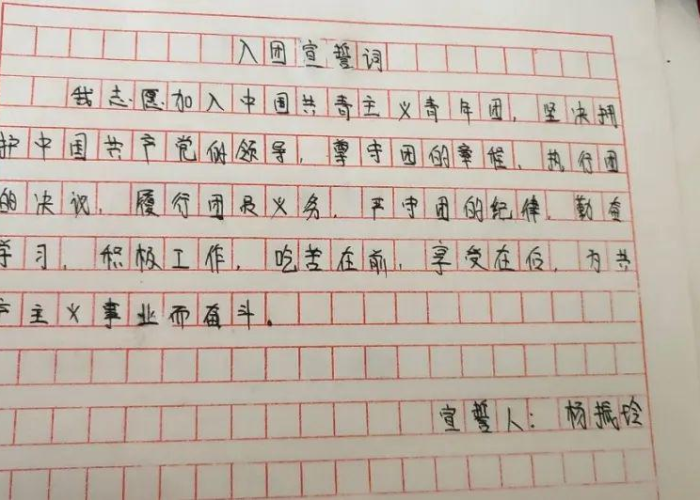 入团宣誓词
我志愿加入中国共青主义青年团，坚决拥
护中国共产党的领导，尊守团的章程，执行团
的决议，履行团员义务，严守团的纪律，勤奋
学习，积极工作，吃苦在前，享受在后，为共
产主义事业而奋斗。
宣誓人：杨振玲